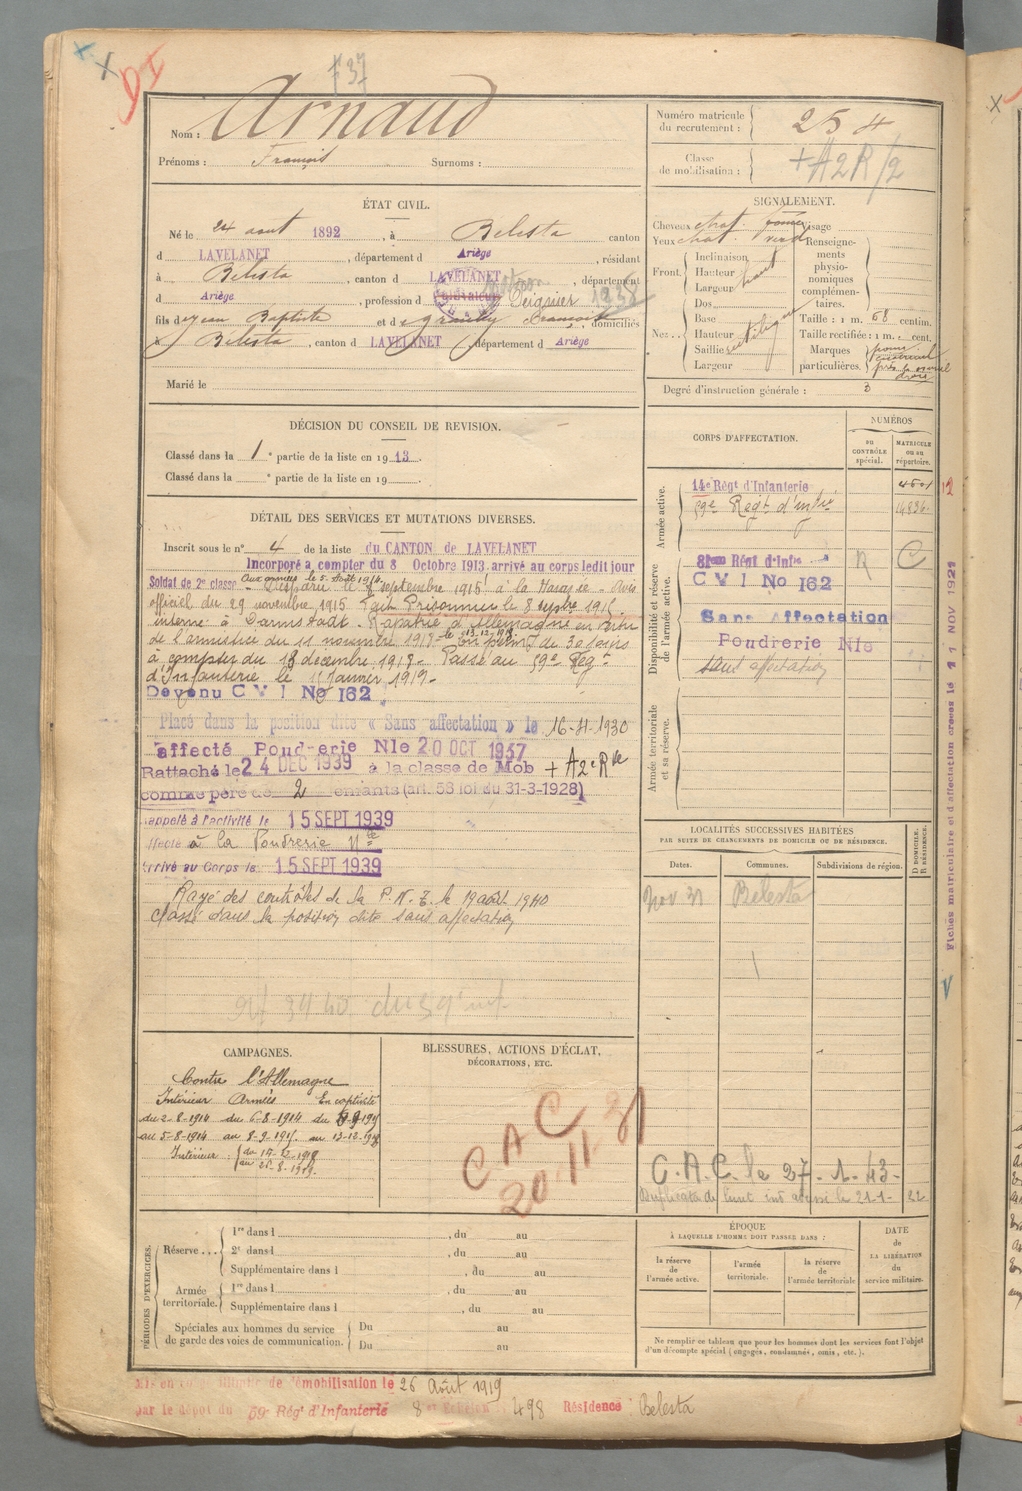 F 37
Nom : Arnaud
Prénoms : François Surnoms :
Numéro matricule du recrutement : 254
Classe de mobilisation : + A2R/2
ÉTAT CIVIL.
Né le 24 aout 1892, à Belesta canton
d LAVELANET, département d Ariège, résidant
à Belesta, canton d LAVELANET, département
d Ariège, profession d Peignier 1938
fils d Jean Baptiste et d Françoise, domiciliés
à Belesta, canton d LAVELANET, département d Ariège
Marié le
SIGNALEMENT.
Cheveux chat. Visage
Yeux chat. Renseignements physionomiques complémentaires.
Front. Inclinaison
Hauteur haut
Largeur
Nez.. Dos
Base
Hauteur
Saillie
Largeur
Taille : 1 m. 68 centim.
Taille rectifiée : 1 m. cent.
Marques particulières.
Degré d'instruction générale : 3
DÉCISION DU CONSEIL DE REVISION.
Classé dans la 1e partie de la liste en 1913.
Classé dans la e partie de la liste en 19
DÉTAIL DES SERVICES ET MUTATIONS DIVERSES.
Inscrit sous le n° 4 de la liste du CANTON de LAVELANET
Incorporé a compter du 8 Octobre 1913. arrivé au corps ledit jour
Soldat de 2e classe Aux armées le 5 Août 1914. Disparu le 8 septembre 1915 à la Harazée - Avis
officiel du 29 novembre 1915. Fait Prisonnier le 8 septbre 1915.
interné à Darmstadt. Rapatrié d'Allemagne en vertu
de l'armistice du 11 novembre 1918 le 13.12.1918. En perm. de 30 jours
à compter du 13 décembre 1918 - Passé au 59e Régt
d'Infanterie le janvier 1919 -
Devenu C V I No 162
Placé dans la position dite « Sans affectation » le 16-4-1930
affecté Poudrerie Nle 20 OCT 1937
Rattaché le 24 DEC 1939 à la classe de Mob + A2e Rve
comme père de 2 enfants (art. 58 loi du 31-3-1928)
rappelé à l'activité le 15 SEPT 1939
affecté à la Poudrerie Nle
Arrivé au Corps le 15 SEPT 1939
Rayé des contrôles de la P. N. T. le 19 août 1940
classé dans la position dite sans affectation
CORPS D'AFFECTATION.
NUMÉROS
DU CONTRÔLE spécial.
MATRICULE ou au répertoire.
Armée active.
14e Régt d'Infanterie 4501
59e Regt d'infie 14836
Disponibilité et réserve de l'armée active.
81me Régt d'Infie R C
C V I No 162
Sans Affectation
Poudrerie Nle
sans affectation
Armée territoriale et sa réserve.
12
Fiches matriculaire et d'affectation créées le 11 NOV 1921
LOCALITÉS SUCCESSIVES HABITÉES
PAR SUITE DE CHANGEMENTS DE DOMICILE OU DE RÉSIDENCE.
Dates. Communes. Subdivisions de région. D DOMICILE. R RÉSIDENCE.
Nov 31 Belesta
C.A.C. le 27-1-43-
CAMPAGNES.
Contre l'Allemagne
Intérieur Armées En captivité
du 2-8-1914 du 6-8-1914 du 9-9-1915
au 5-8-1914 au 8-9-1915. au 13-12-1918
Intérieur : du 14-12-1918
au 25-8-1919.
BLESSURES, ACTIONS D'ÉCLAT,
DÉCORATIONS, ETC.
C A C 31
20 11
PÉRIODES D'EXERCICES.
Réserve... 1re dans l , du au
2e dans l , du au
Supplémentaire dans l , du au
Armée territoriale. 1re dans l , du au
Supplémentaire dans l , du au
Spéciales aux hommes du service de garde des voies de communication. Du au
Du au
ÉPOQUE
À LAQUELLE L'HOMME DOIT PASSER DANS :
la réserve de l'armée active.
l'armée territoriale.
la réserve de l'armée territoriale
DATE de LA LIBÉRATION du service militaire.
Ne remplir ce tableau que pour les hommes dont les services font l'objet
d'un décompte spécial (engagés, condamnés, omis, etc.).
Mis en congé illimité de démobilisation le 26 Août 1919
par le dépôt du 59e Régt d'Infanterie 8e Echelon 498 Résidence : Belesta